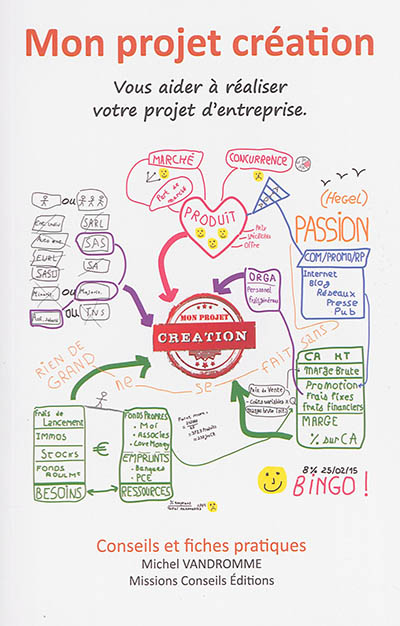 Mon projet création
Vous aider à réaliser
votre projet d'entreprise.
MARCHÉ
CONCURRENCE
Part de marché
PRODUIT
Prix
Offre
(Hegel)
PASSION
COM/PROMO/RP
Internet
Blog
Réseaux
Presse
Pub
ou
SARL
SAS
EURL
SA
SASU
ou
ou
TNS
ORGA
Personnel
MON PROJET
CREATION
RIEN DE
GRAND
ne se FAIT sans
CA HT
- Marge Brute
Promotion
Frais Fixes
Frais financiers
MARGE
% sur CA
Prix de Vente
- Coûts variables
= Marge
Frais de
Lancement
IMMOS
STOCKS
FONDS
BESOINS
€
FONDS PROPRES
• Moi
• Associés
• Love Money
EMPRUNTS
• Banques
• PCE
RESSOURCES
25/02/15
BINGO !
Conseils et fiches pratiques
Michel VANDROMME
Missions Conseils Éditions